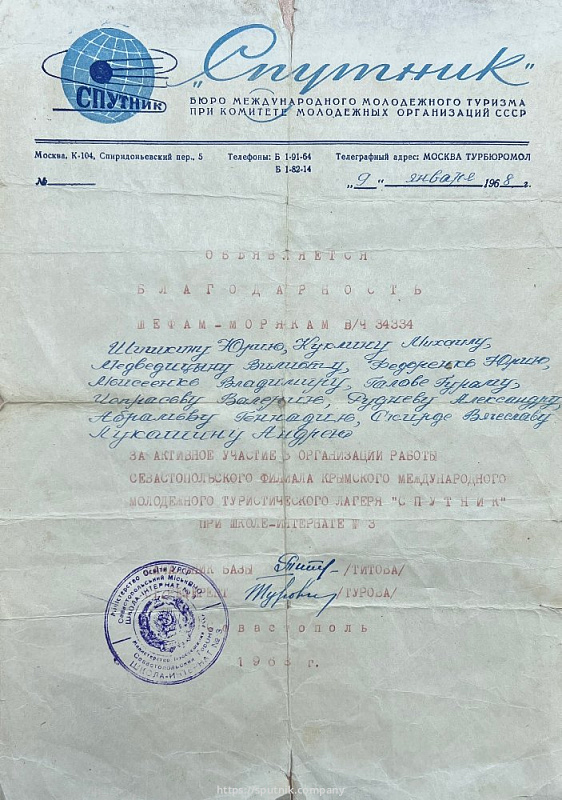 СПУТНИК
„Спутник"
БЮРО МЕЖДУНАРОДНОГО МОЛОДЕЖНОГО ТУРИЗМА
ПРИ КОМИТЕТЕ МОЛОДЕЖНЫХ ОРГАНИЗАЦИЙ СССР
Москва, К-104, Спиридоньевский пер., 5 Телефоны: Б 1-91-64 Телеграфный адрес: МОСКВА ТУРБЮРОМОЛ
Б 1-82-14
№ „9" января 1968 г.
ОБЪЯВЛЯЕТСЯ
БЛАГОДАРНОСТЬ
ШЕФАМ-МОРЯКАМ В/Ч 34334
Шишкину Юрию, Куклину Михаилу,
Медведицину Вилиоту, Федоренко Юрию,
Моисеенко Владимиру, Галове Гураму,
Валерию, Рудневу Александру,
Абрамову Геннадию, Скирде Вячеславу
Лукашину Андрею
ЗА АКТИВНОЕ УЧАСТИЕ В ОРГАНИЗАЦИИ РАБОТЫ
СЕВАСТОПОЛЬСКОГО ФИЛИАЛА КРЫМСКОГО МЕЖДУНАРОДНОГО
МОЛОДЕЖНОГО ТУРИСТИЧЕСКОГО ЛАГЕРЯ "СПУТНИК"
ПРИ ШКОЛЕ-ИНТЕРНАТЕ № 3
БАЗЫ /ТИТОВА/
/ТУРОВА/
Міністерство Освіти УРСР
ШКОЛА-ІНТЕРНАТ № 3
ШКОЛА-ИНТЕРНАТ № 3
196 г.
https://sputnik.company